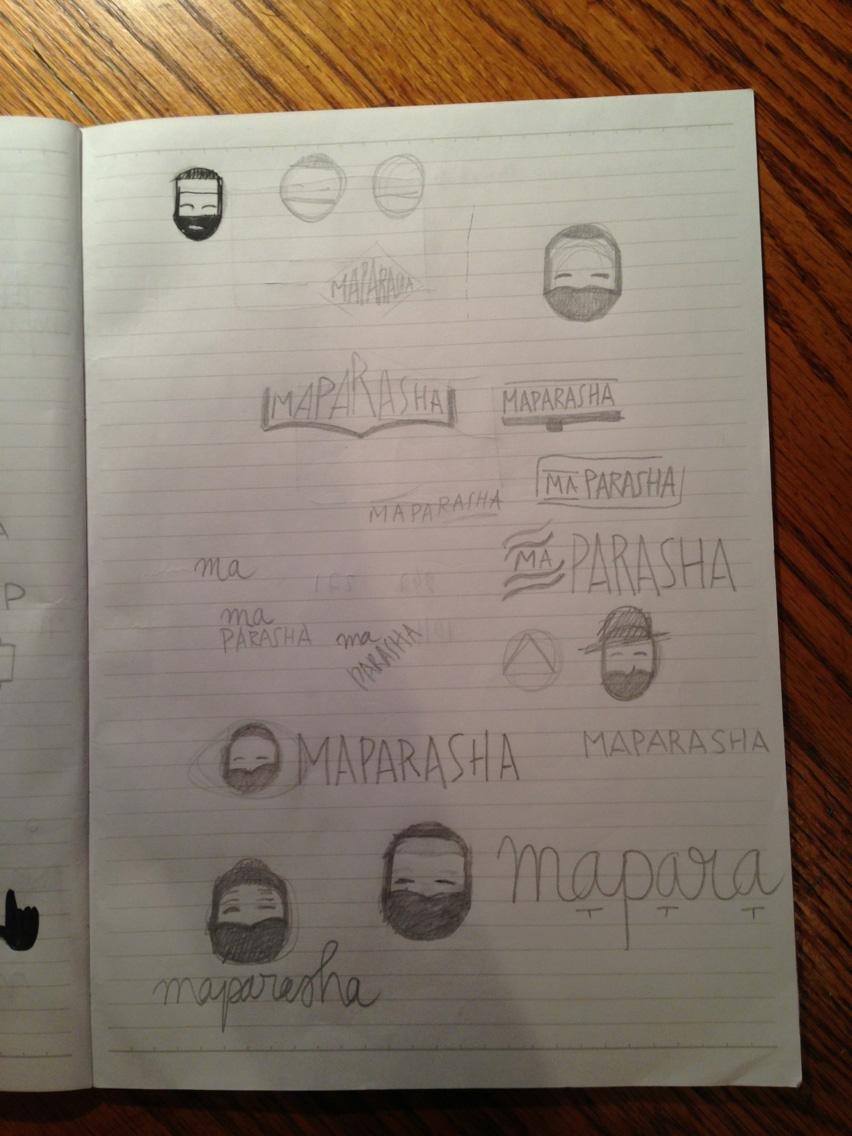 MAPARASHA
MAPARASHA
MAPARASHA
MAPARASHA
MAPARASHA
ma
MA PARASHA
ma
PARASHA
ma
PARASHA
MAPARASHA
MAPARASHA
mapara
maparasha
P